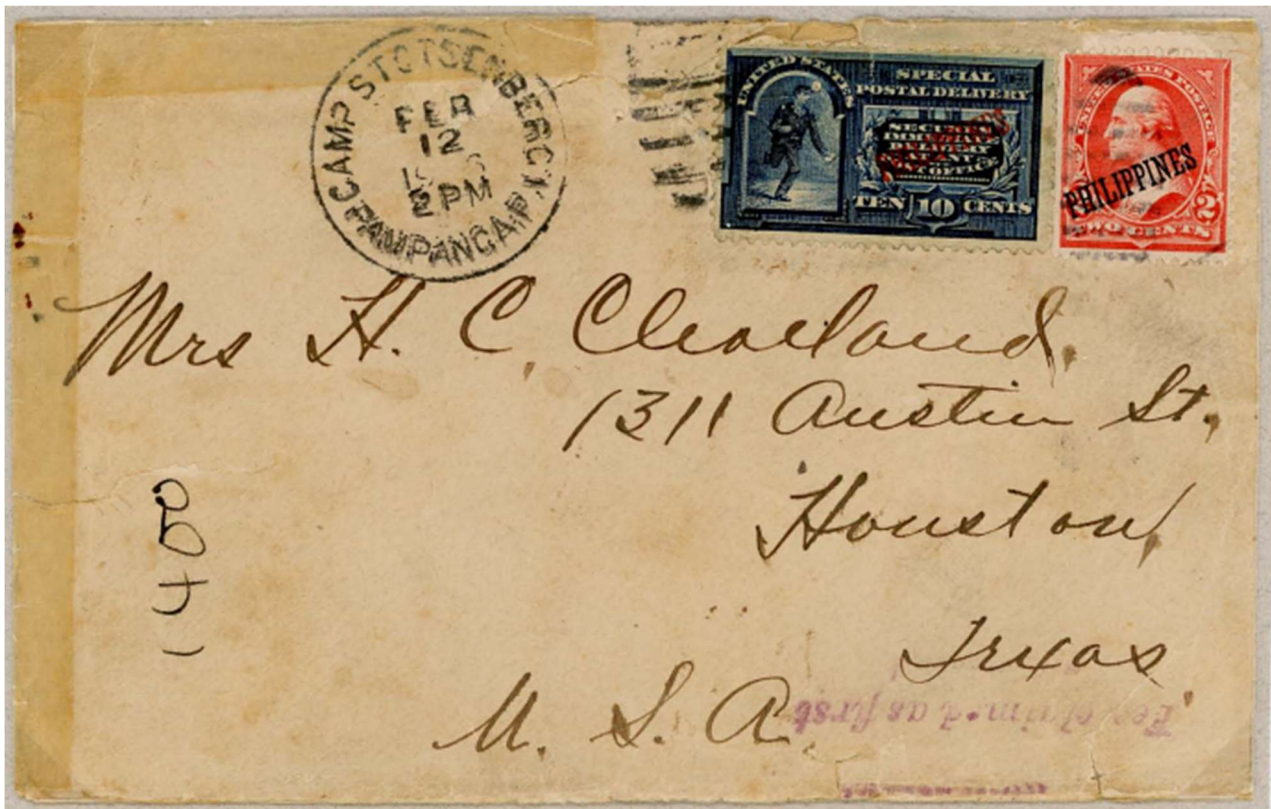 CAMP STOTSENBERG
FEB
12
2 PM
PAMPANGA.P.I.
UNITED STATES
SPECIAL
POSTAL DELIVERY
SECURES
IMMEDIATE
DELIVERY
AT ANY
POST OFFICE
TEN 10 CENTS
UNITED STATES POSTAGE
PHILIPPINES
2
TWO CENTS
Mrs H. C. Cleveland.
1311 Austin St.,
Houston,
Texas
U. S. A.
Fee claimed as first